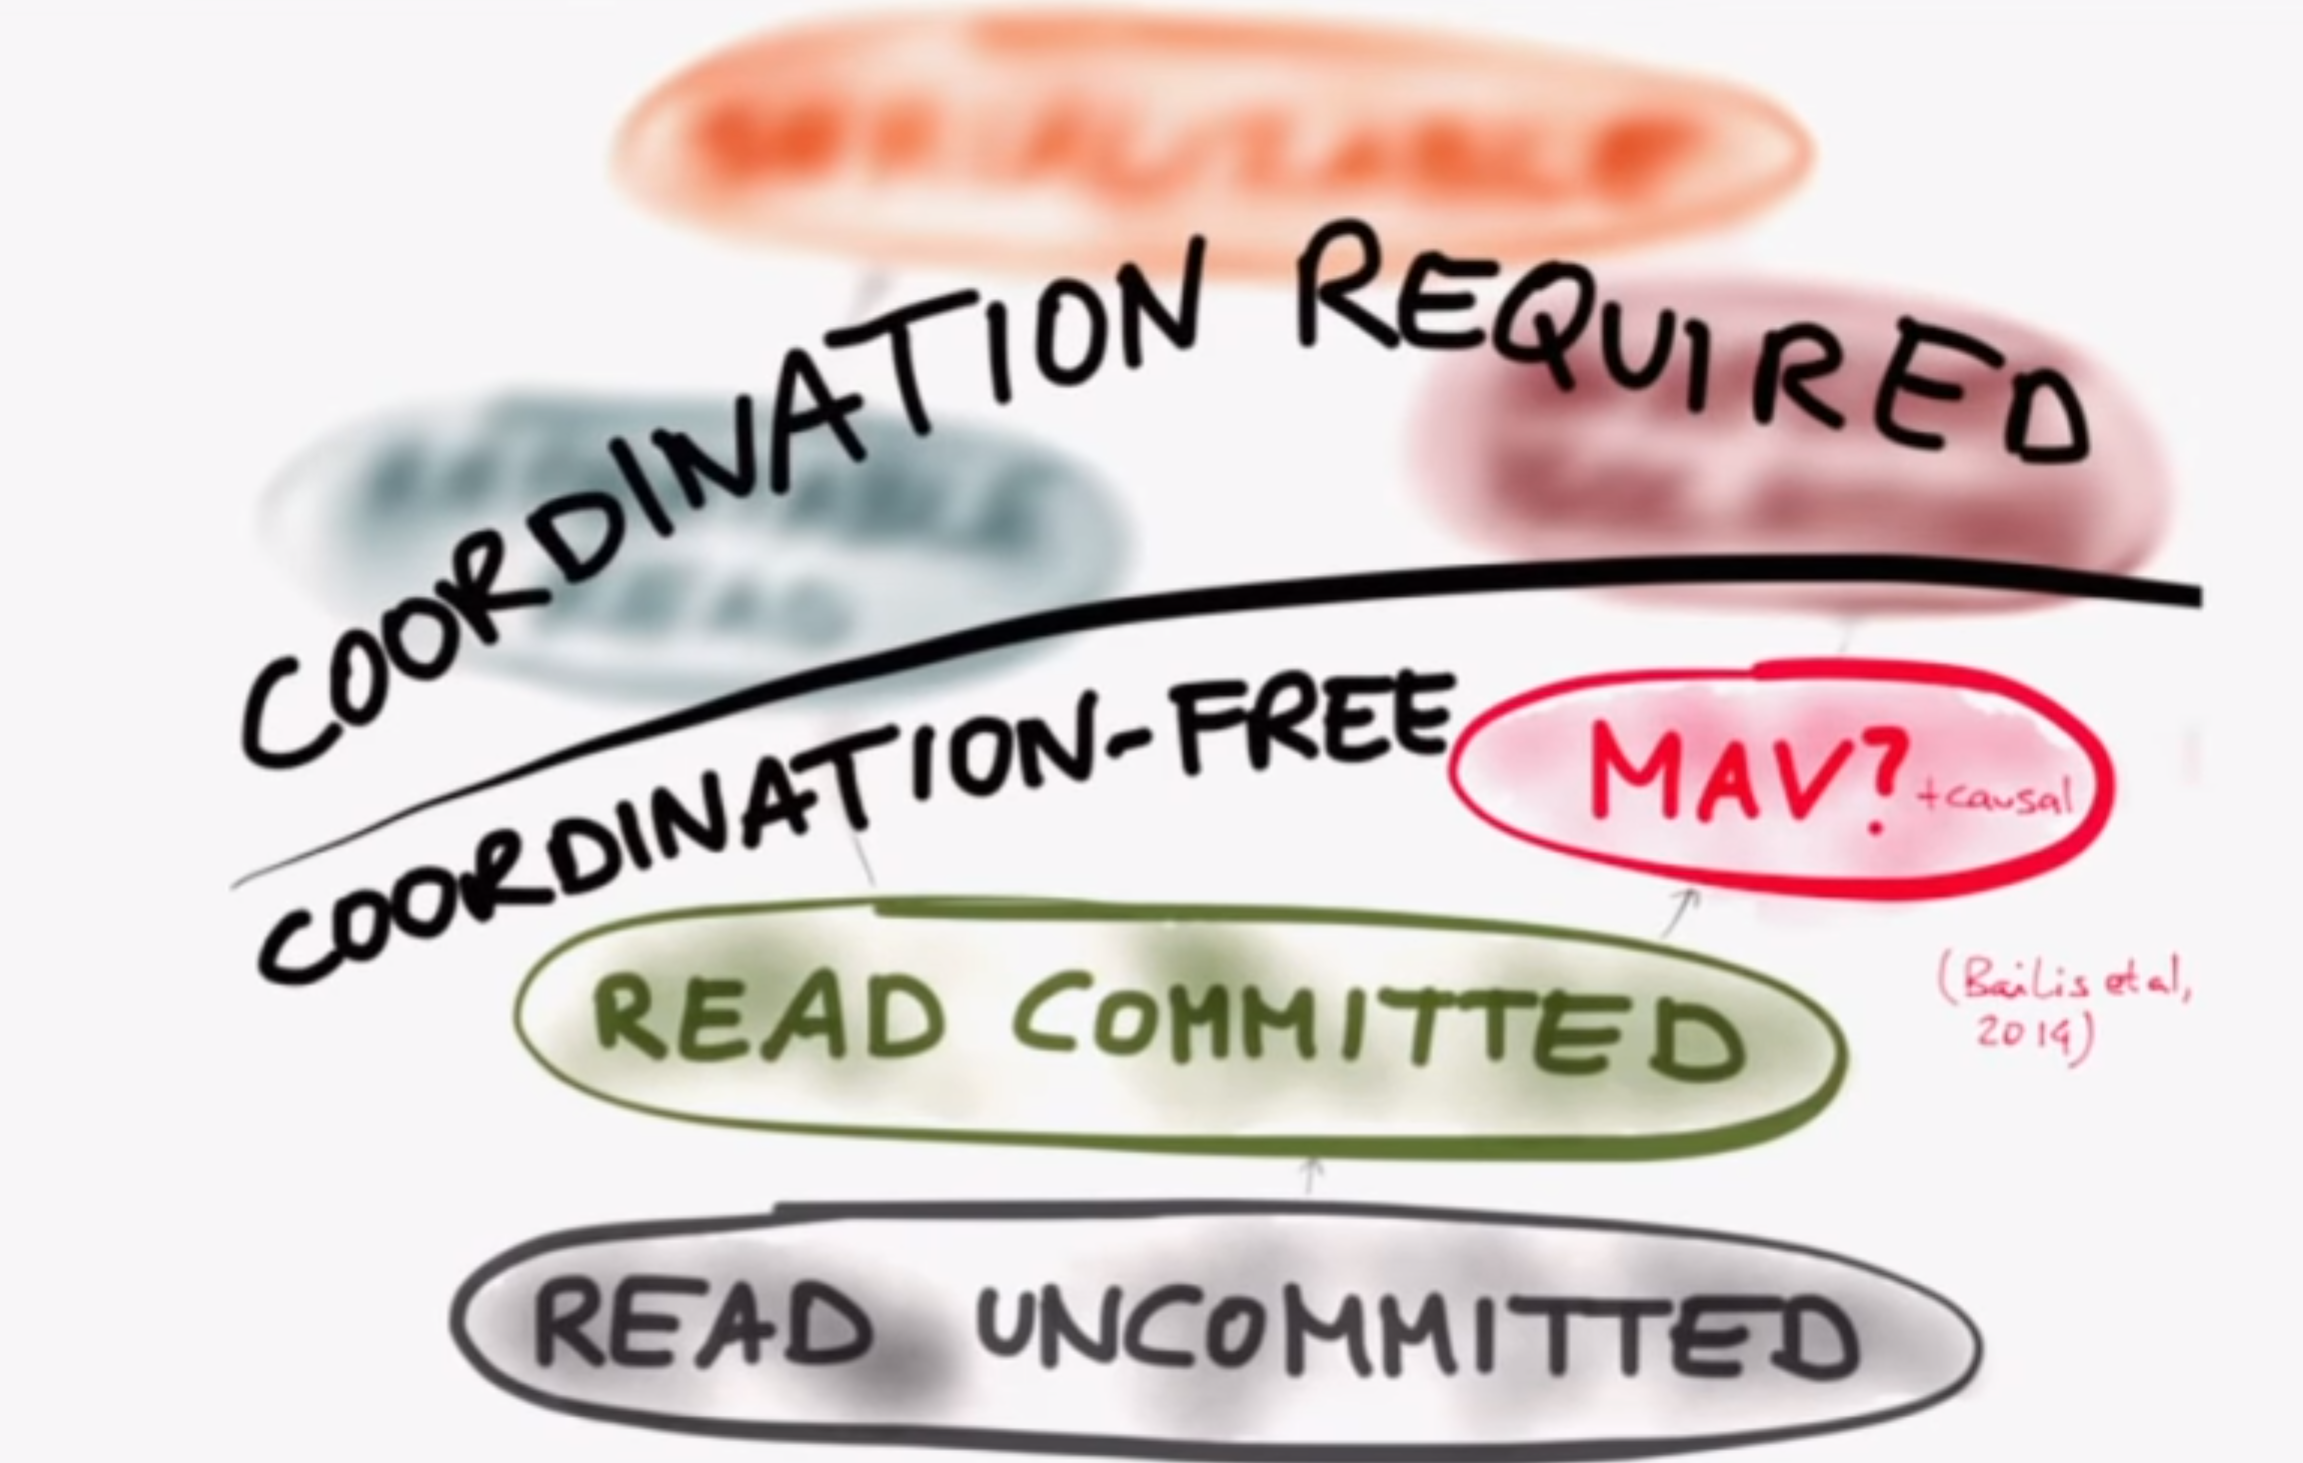 COORDINATION REQUIRED
COORDINATION-FREE
MAV? +causal
(Bailis et al,
2014)
READ COMMITTED
READ UNCOMMITTED